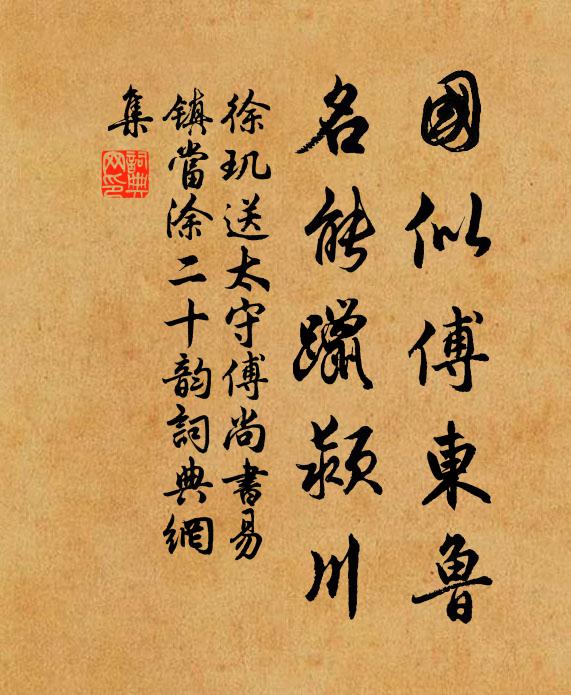 國似傅東魯
名能躐颍川
徐玑送太守傅尚書易
镇當涂二十韵詞典網
集
詞典
网印